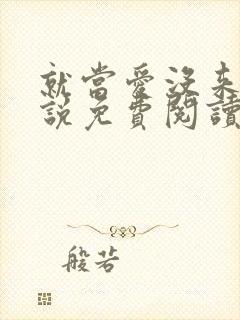 就當愛沒來
說免費閱讀
般若